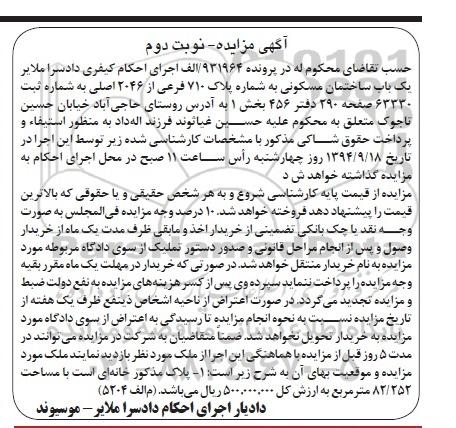 آگهی مزایده- نوبت دوم
حسب تقاضای محکوم له در پرونده ۹۳۱۹۶۴/الف اجرای احکام کیفری دادسرا ملایر
یک باب ساختمان مسکونی به شماره پلاک ۷۱۰ فرعی از ۲۰۴۶ اصلی به شماره ثبت
۶۳۳۳۰ صفحه ۲۹۰ دفتر ۴۵۶ بخش ۱ به آدرس روستای حاجی‌آباد خیابان حسین
تاجوک متعلق به محکوم علیه حســین غیاثوند فرزند اله‌داد به منظور استیفاء و
پرداخت حقوق شــاکی مذکور با مشخصات کارشناسی شده زیر توسط این اجرا در
تاریخ ۱۳۹۴/۹/۱۸ روز چهارشنبه رأس ســاعت ۱۱ صبح در محل اجرای احکام به
مزایده گذاشته خواهد ش د
مزایده از قیمت پایه کارشناسی شروع و به هر شخص حقیقی و یا حقوقی که بالاترین
قیمت را پیشنهاد دهد فروخته خواهد شد. ۱۰ درصد وجه مزایده فی‌المجلس به صورت
وجــه نقد یا چک بانکی تضمینی از خریدار اخذ و مابقی ظرف مدت یک ماه از خریدار
وصول و پس از انجام مراحل قانونی و صدور دستور تملیک از سوی دادگاه مربوطه مورد
مزایده به نام خریدار منتقل خواهد شد. در صورتی که خریدار در مهلت یک ماه مقرر بقیه
وجه مزایده را پرداخت ننماید سپرده وی پس از کسر هزینه‌های مزایده به نفع دولت ضبط
و مزایده تجدید می‌گردد. در صورت اعتراض از ناحیه اشخاص ذینفع ظرف یک هفته از
تاریخ مزایده نســبت به نحوه انجام مزایده تا رسیدگی به اعتراض از سوی دادگاه مورد
مزایده به خریدار تحویل نخواهد شد. ضمناً متقاضیان به شرکت در مزایده می‌توانند در
مدت ۵ روز قبل از مزایده با هماهنگی این اجرا از ملک مورد نظر بازدید نمایند ملک مورد
مزایده و موقعیت بهای آن به شرح زیر است: ۱- پلاک مذکور خانه‌ای است با مساحت
۸۲/۲۵۲ مترمربع به ارزش کل ۵۰۰,۰۰۰,۰۰۰ ریال می‌باشد. (م‌الف ۵۲۰۴)
دادیار اجرای احکام دادسرا ملایر – موسیوند